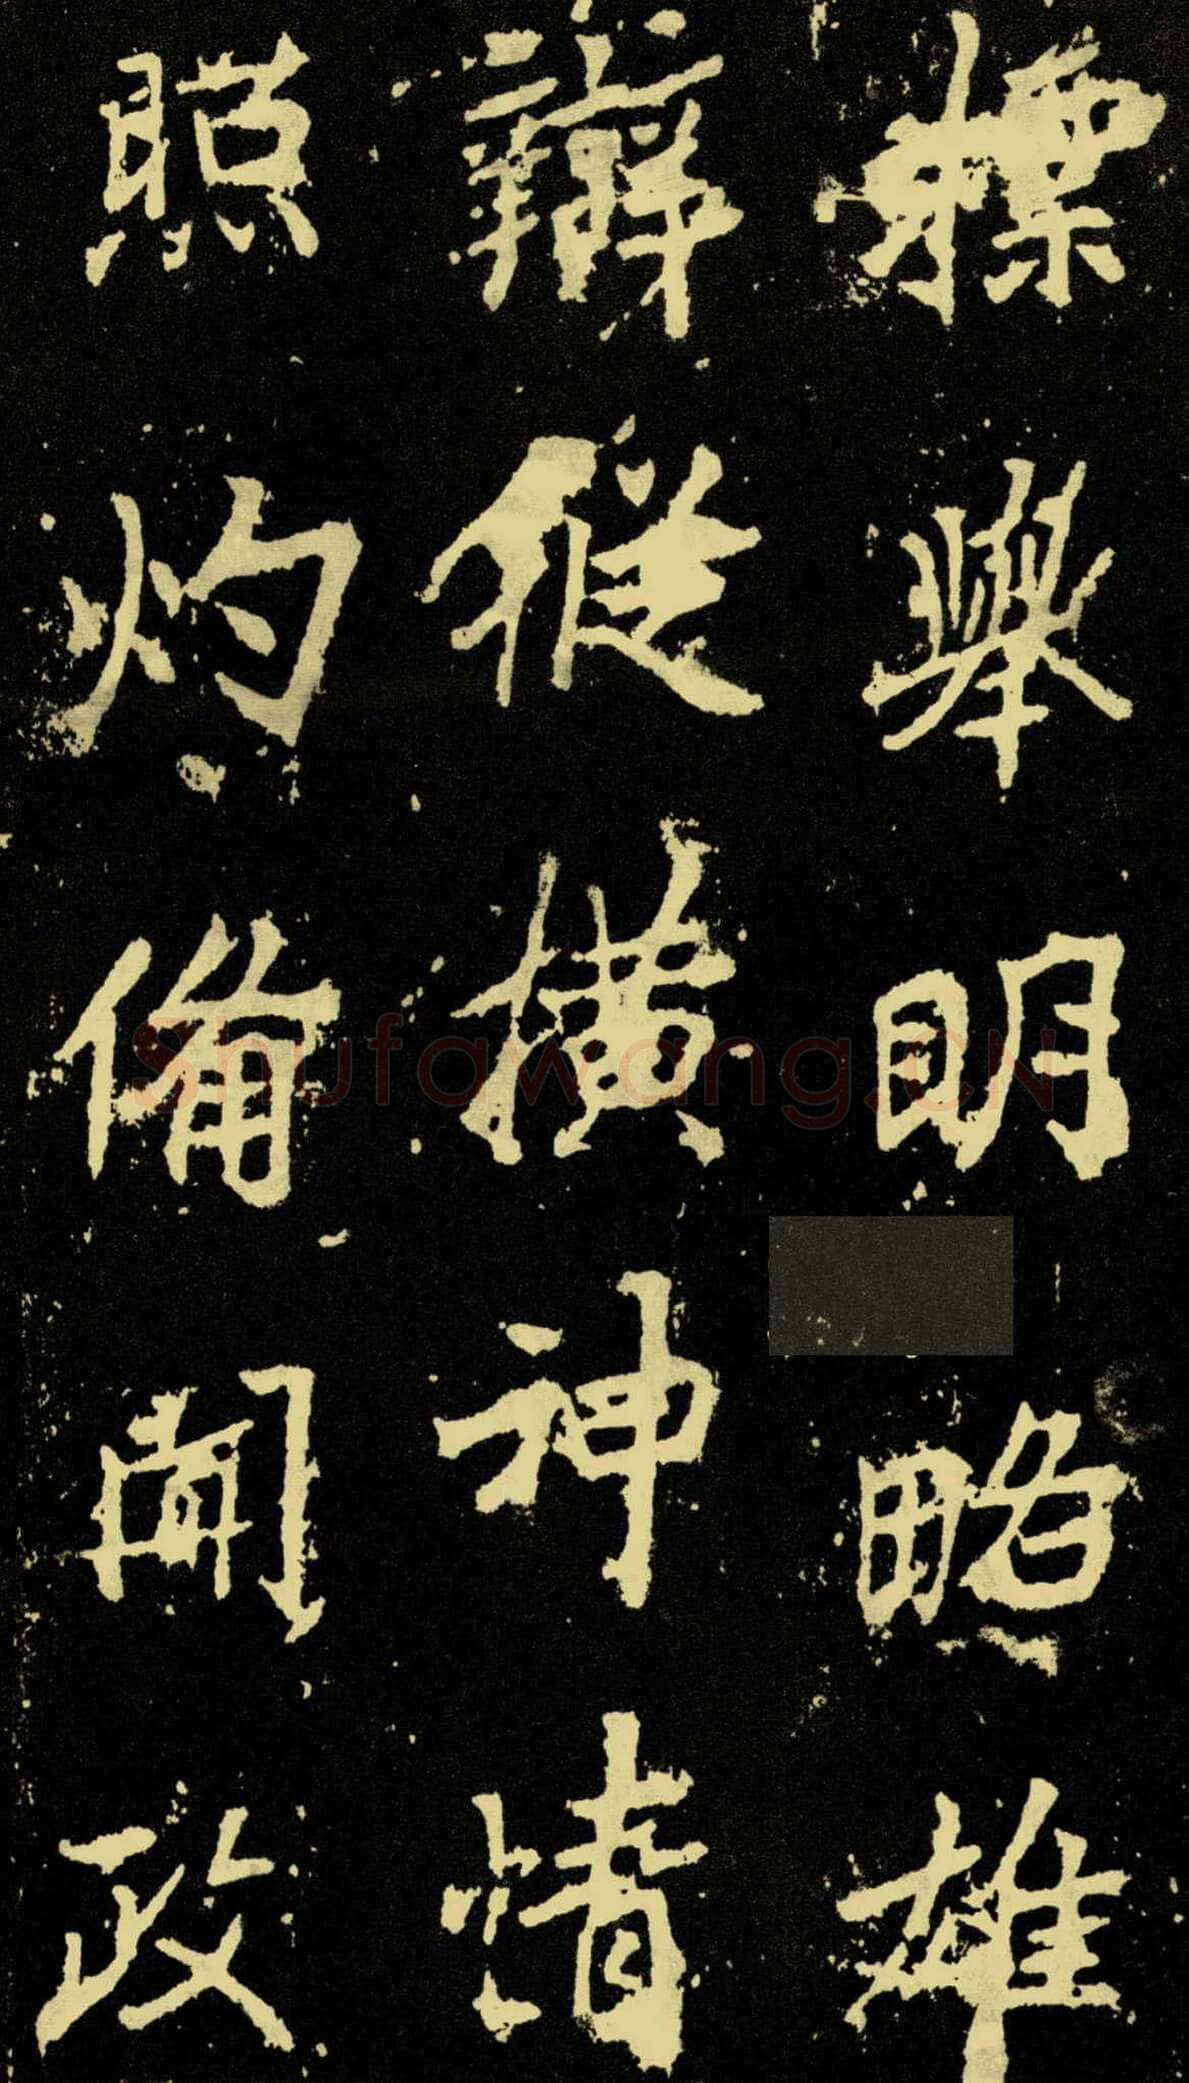 標舉明略雄
辯從橫神情
照灼備聞政
Shufawang.CN